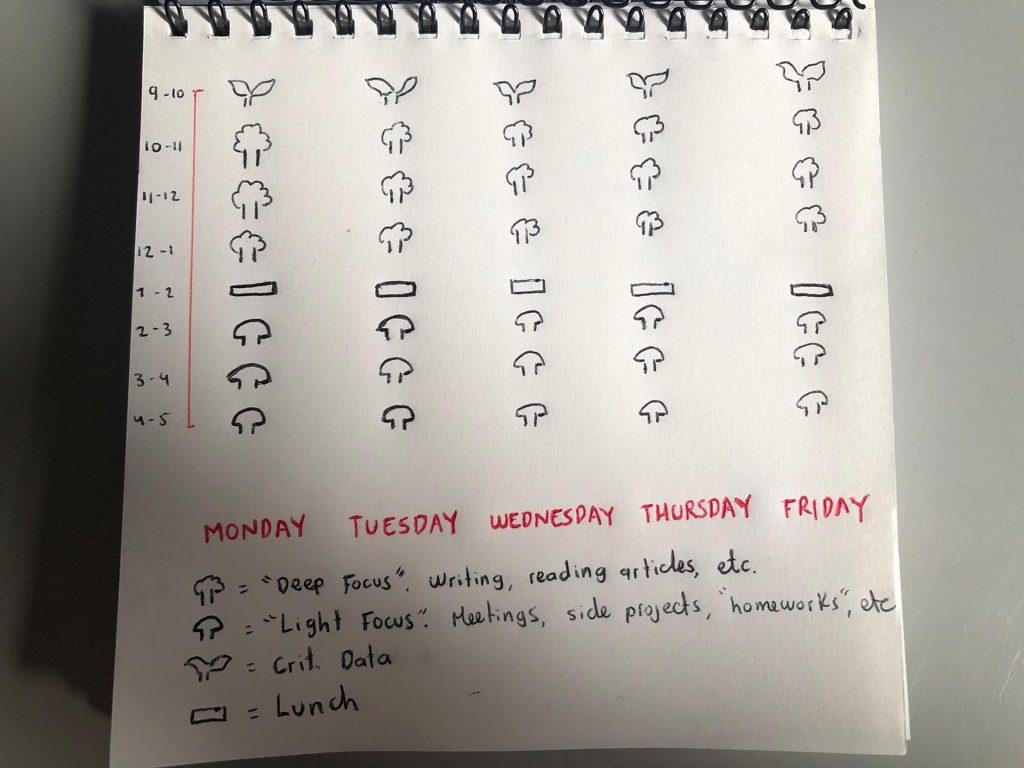 9-10
10-11
11-12
12-1
1-2
2-3
3-4
4-5
MONDAY TUESDAY WEDNESDAY THURSDAY FRIDAY
= "Deep Focus". Writing, reading articles, etc.
= "Light Focus". Meetings, side projects, "homeworks", etc
= Crit. Data
= Lunch